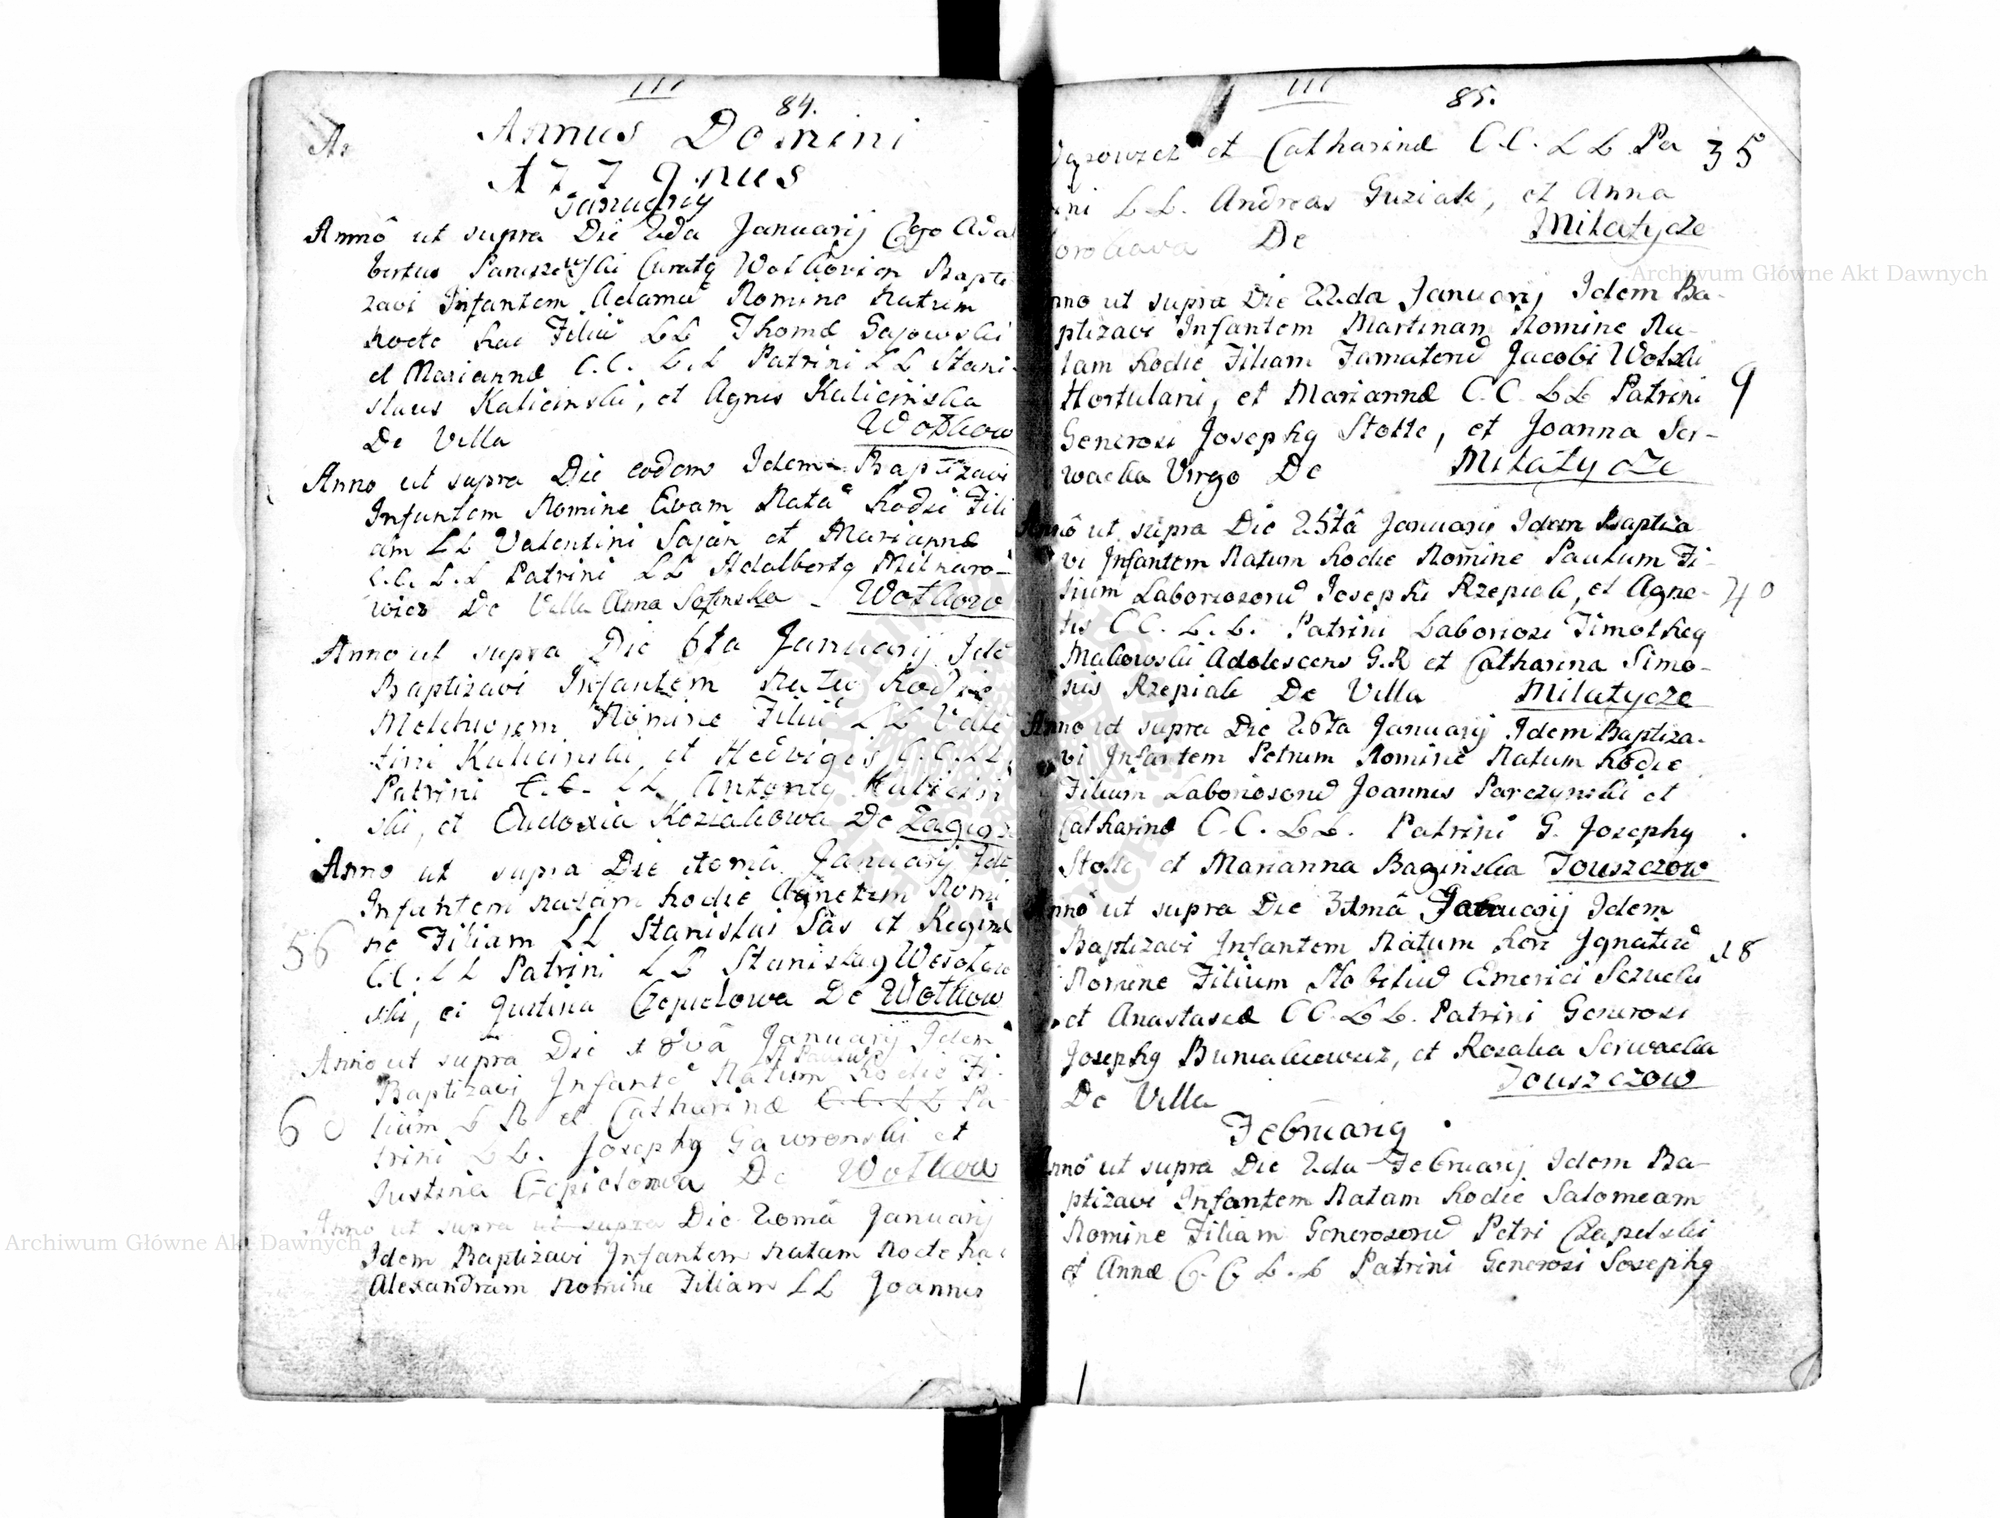 111
84.
Annus Domini
1779nus
Januarij
Annô ut supra Die 2da Januarij Ego Adal
bertus Curatq Wołkovien Bapti
zavi Infantem Adamũ Nomine Natum
Nocte hac Filiũ LL Thomæ Gajowski
et Mariannæ C.C. L.L Patrini LL Stani-
slaus Kaliciński, et Agnes Kalicińska
De Villa Wołkow
Anno ut supra Die eodem Idem Baptizavi
Infantem Nomine Evam Natã hodie Fili
am LL Valentini Sajan et Mariannæ
C.C. L.L Patrini LL Adalbertq Milnaro-
wicz De Villa Anna - Wołkow
Anno ut supra Die 6ta Januarij Idẽ
Baptizavi Infantem Natũ hodie
Melchiorem Nomine Filiũ LL Valẽ
tini Kaliciński, et Hedvigis C.C.LL
Patrini C.C. LL Antonig Kalicin
ski, et Eudoxia Koziakowa De
Anno ut supra Die Januarij Idẽ
Infantem natam hodie Agnetem Nomi
56 ne Filiam LL Stanislai Sas et Reginæ
C.C. LL Patrini LL Stanislag Wesołow
ski, et Justina Czepielowa De Wołkow
Anno ut supra Die 18vâ Januarij Idem
Baptizavi Infantẽ Natum hodie Fi-
60 lium L R et Catharinæ C.C.LL Pa
trini LL. Josephg Gawronski et
Justina Czepielowa De Wołkow
Anno ut supra ut supra Die 20mâ Januarij
Idem Baptizavi Infantem Natam Nocte hac
Alexandram Nomine Filiam LL Joannis
111
85.
et Catharinæ C.C. LL Pa 35
ini LL. Andreas Guziak, et Anna
De Miłatycze
nno ut supra Die 22da Januarij Idem Ba-
ptizavi Infantem Martinam Nomine Na-
tam hodie Filiam Famatorũ Jacobi Wolski
Hortulani, et Mariannæ C.C. LL Patrini 9
Generosi Josephg Stotte, et Joanna Ser-
wacka Virgo De Miłatycze
Annô ut supra Die 25tâ Januarij Idem Baptiza
vi Infantem Natum hodie Nomine Paulum Fi-
lium Laboriosorũ Josephi Rzepiak, et Agne- 40
tis C.C. L.L. Patrini Laboriosi Timotheg
Makowski Adolescens G.R et Catharina Simo-
nis Rzepiak De Villa Miłatycze
Anno ut supra Die 26ta Januarij Idem Baptiza-
vi Infantem Petrum Nomine Natum hodie
Filium Laboriosorũ Joannis Parczynski et
Catharinæ C.C. LL. Patrini G. Josephg
Stotte et Marianna Baginska Touszczow
Annô ut supra Die 31mâ Januarij Idem
Baptizavi Infantem Natum heri Ignatiũ 18
Nomine Filium Nobiliũ Emerici
et Anastasiæ C.C. LL. Patrini Generosi
Josephg et Rosalia Serwacka
De Villa Touszczow
Februarig
Annô ut supra Die 2da Februarij Idem Ba-
ptizavi Infantem Natam hodie Salomeam
Nomine Filiam Generosorũ Petri Czapelski
et Annæ C.C L.L Patrini Generosi Josephg
Archiwum Główne Akt Dawnych
Archiwum Główne Akt Dawnych